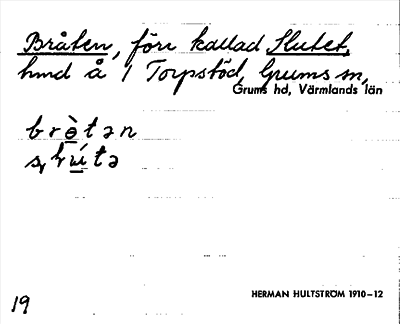 Bråten, förr kallad Slutet,
hmd å 1 Torpstöd, Grums sn,
Grums hd, Värmlands län
brètən
HERMAN HULTSTRÖM 1910–12
19